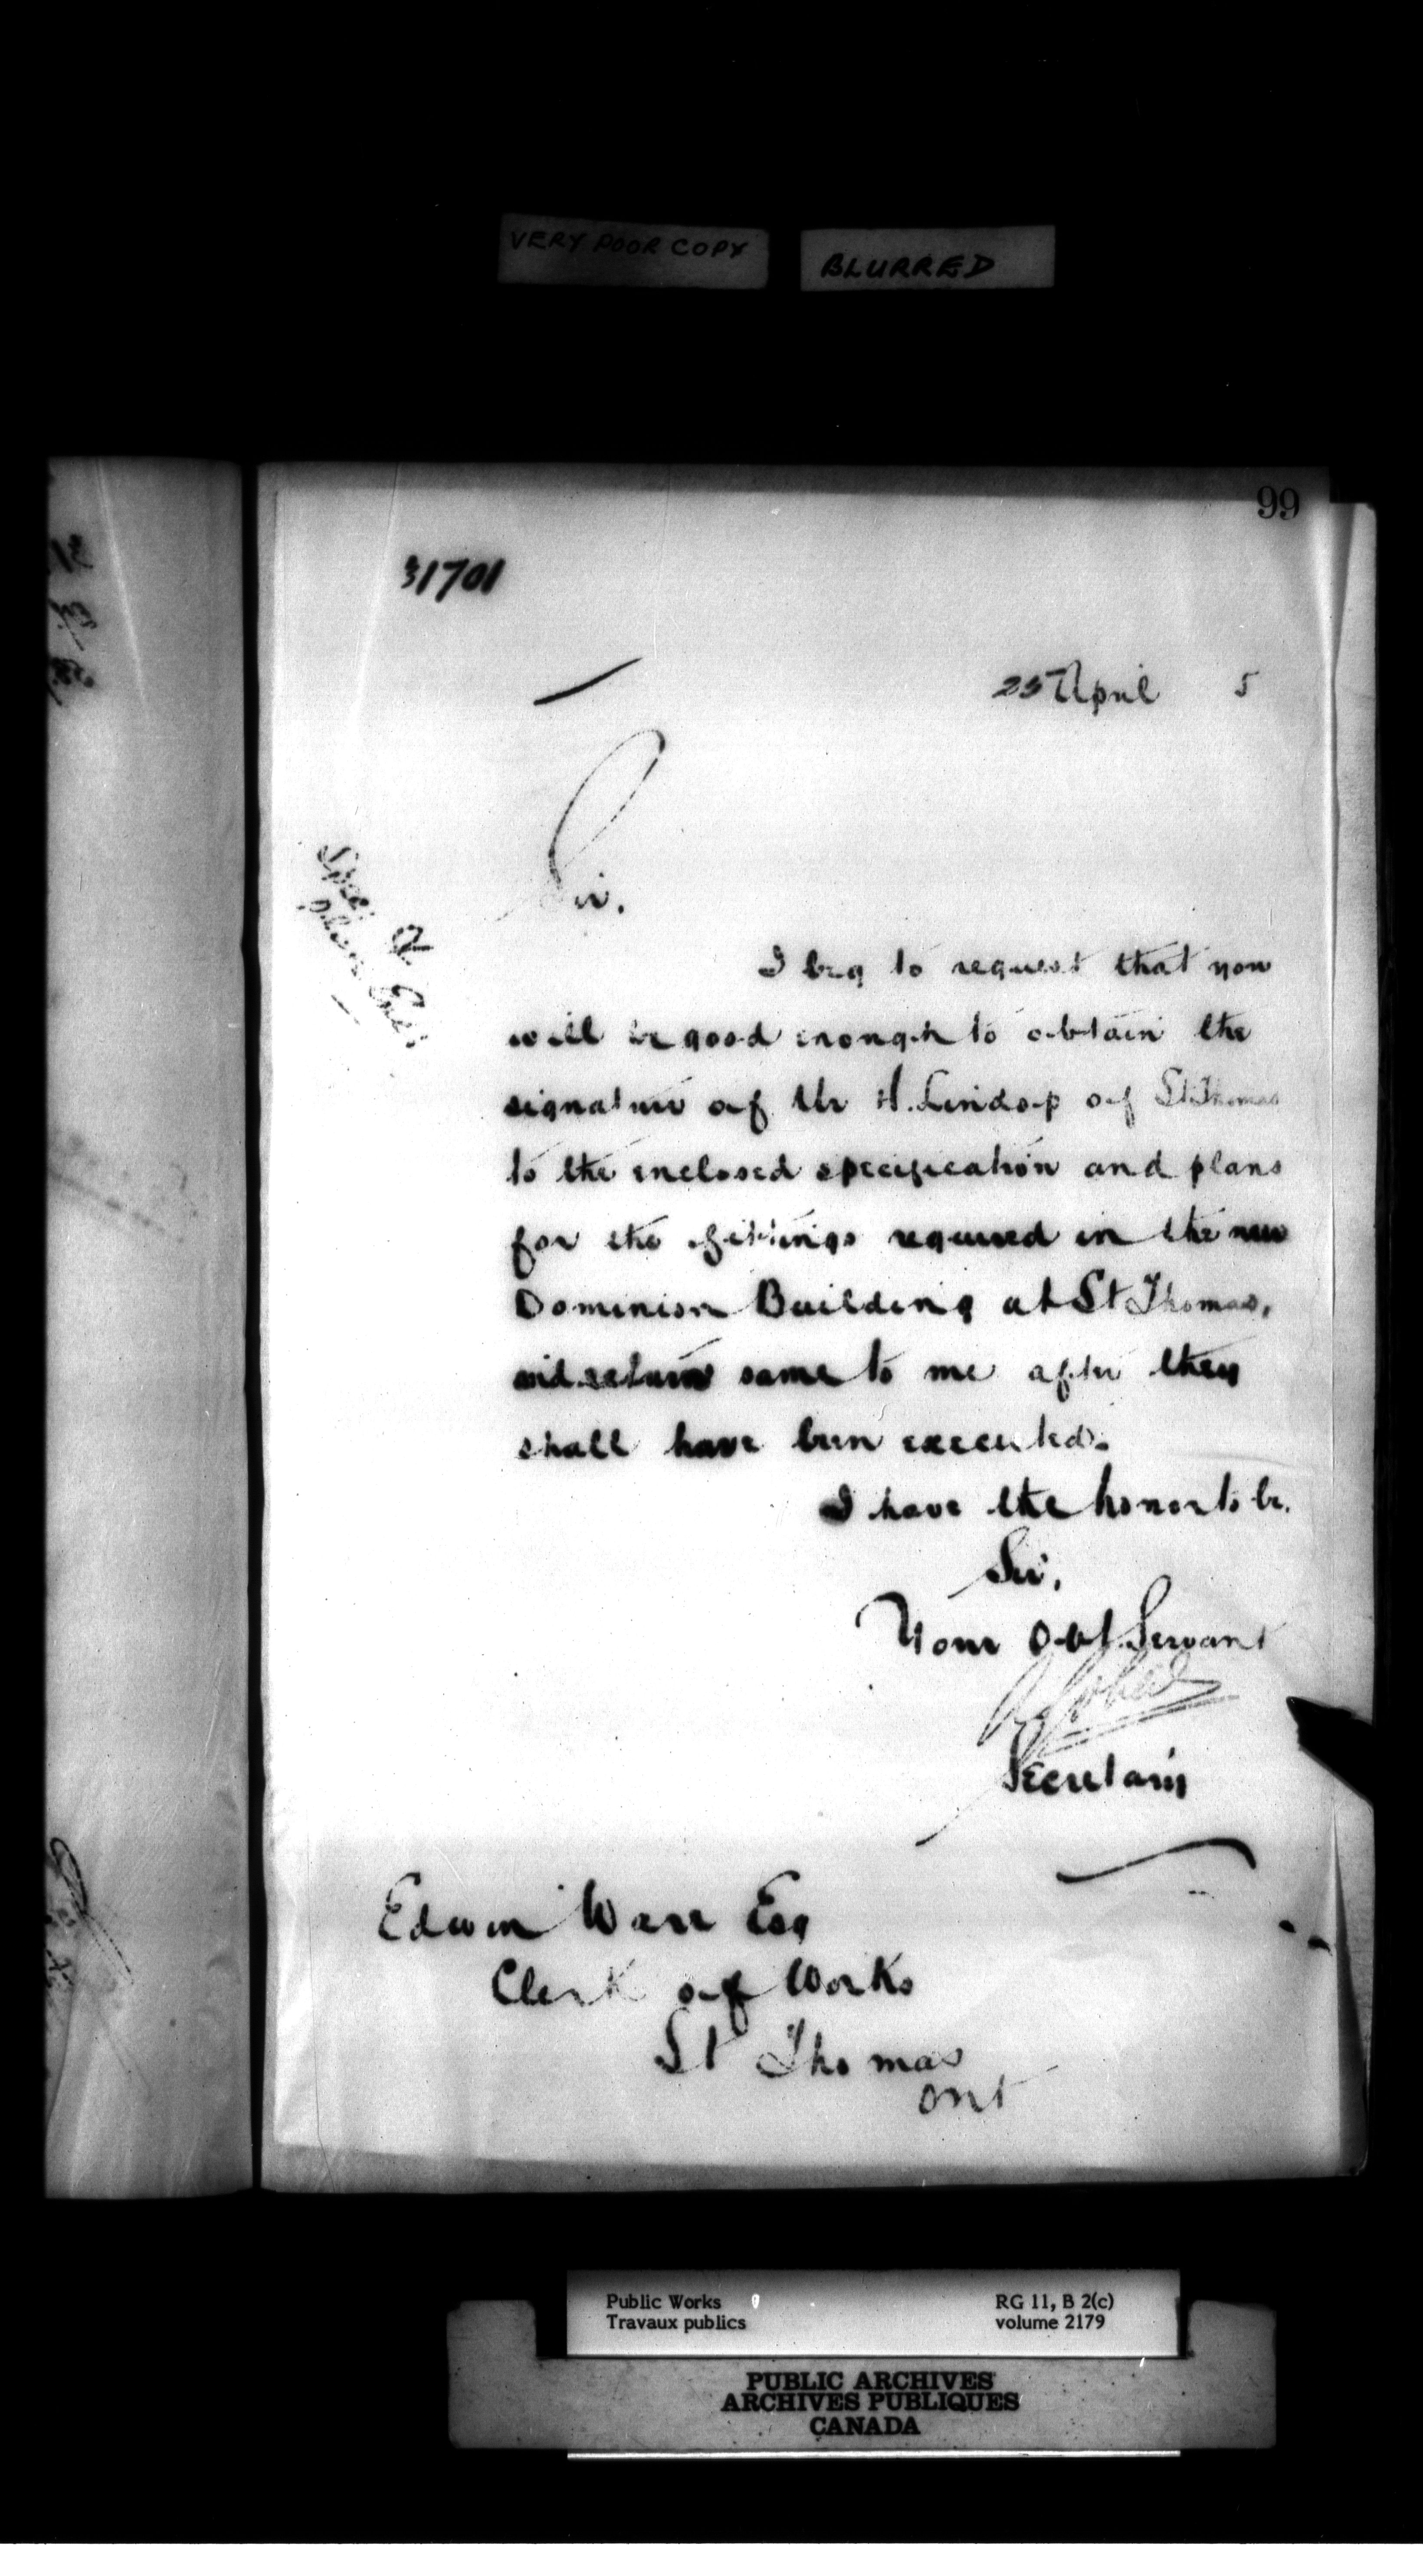 VERY POOR COPY
BLURRED
99
31701
25 April 5
Spec. &
plans Encl.
Sir,
I beg to request that you
will be good enough to obtain the
signature of Mr H. Lindop of St Thomas
to the enclosed specification and plans
for the fittings required in the new
Dominion Building at St Thomas,
and return same to me after they
shall have been executed.
I have the honor to be,
Sir,
Your Obt Servant
Secretary
Edwin Ware Esq
Clerk of Works
St Thomas
Ont
Public Works
Travaux publics
RG 11, B 2(c)
volume 2179
PUBLIC ARCHIVES
ARCHIVES PUBLIQUES
CANADA